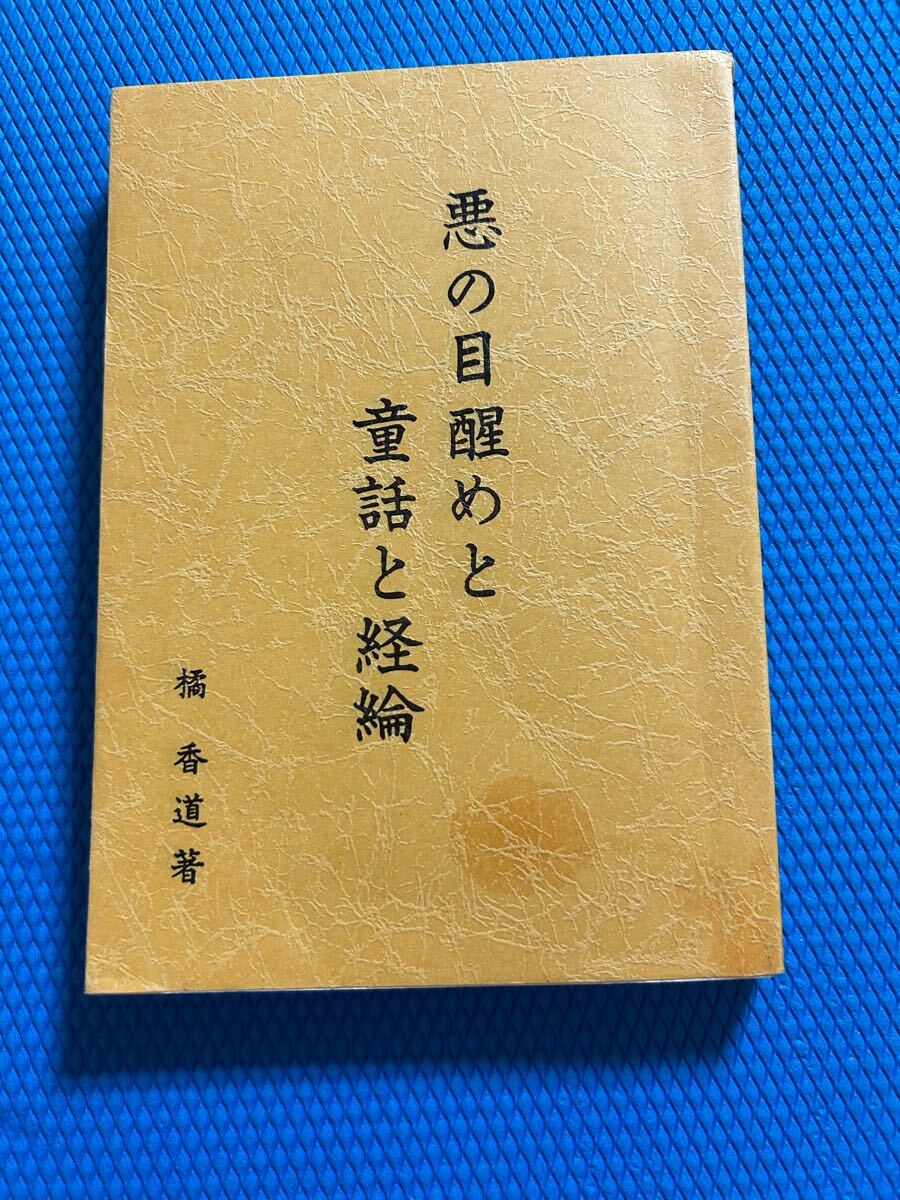 悪の目醒めと
童話と経綸
橘 香道著